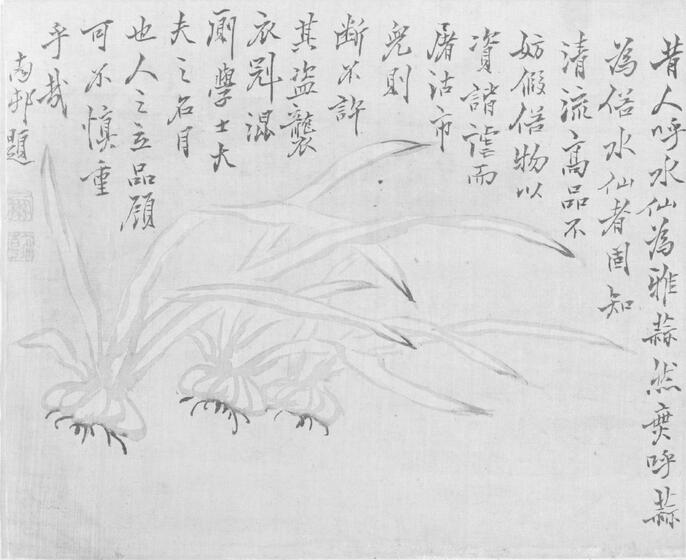 昔人呼水仙為雅蒜然呼蒜
為俗水仙者固知
清流高品不
妨假俗物以
資諧謔而
屠沽市
兒則
断不許
其盜襲
衣冠混
廁學士大
夫之名目
也人之立品顧
可不慎重
乎哉
南邨題